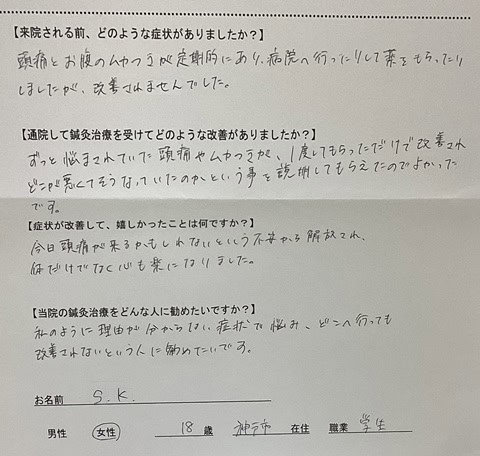 【来院される前、どのような症状がありましたか？】
頭痛とお腹のムカつきが定期的にあり、病院へ行ったりして薬をもらったり
しましたが、改善されませんでした。
【通院して鍼灸治療を受けてどのような改善がありましたか？】
ずっと悩まされていた頭痛やムカつきが、1度してもらっただけで改善され
どこが悪くてそうなっていたのかという事を説明してもらえたのでよかった
です。
【症状が改善して、嬉しかったことは何ですか？】
今日頭痛が来るかもしれないという不安から解放され、
体だけでなく心も楽になりました。
【当院の鍼灸治療をどんな人に勧めたいですか？】
私のように理由が分からない症状で悩み、どこへ行っても
改善されないという人に勧めたいです。
お名前 S.K.
男性 女性 18 歳 神戸市 在住 職業 学生